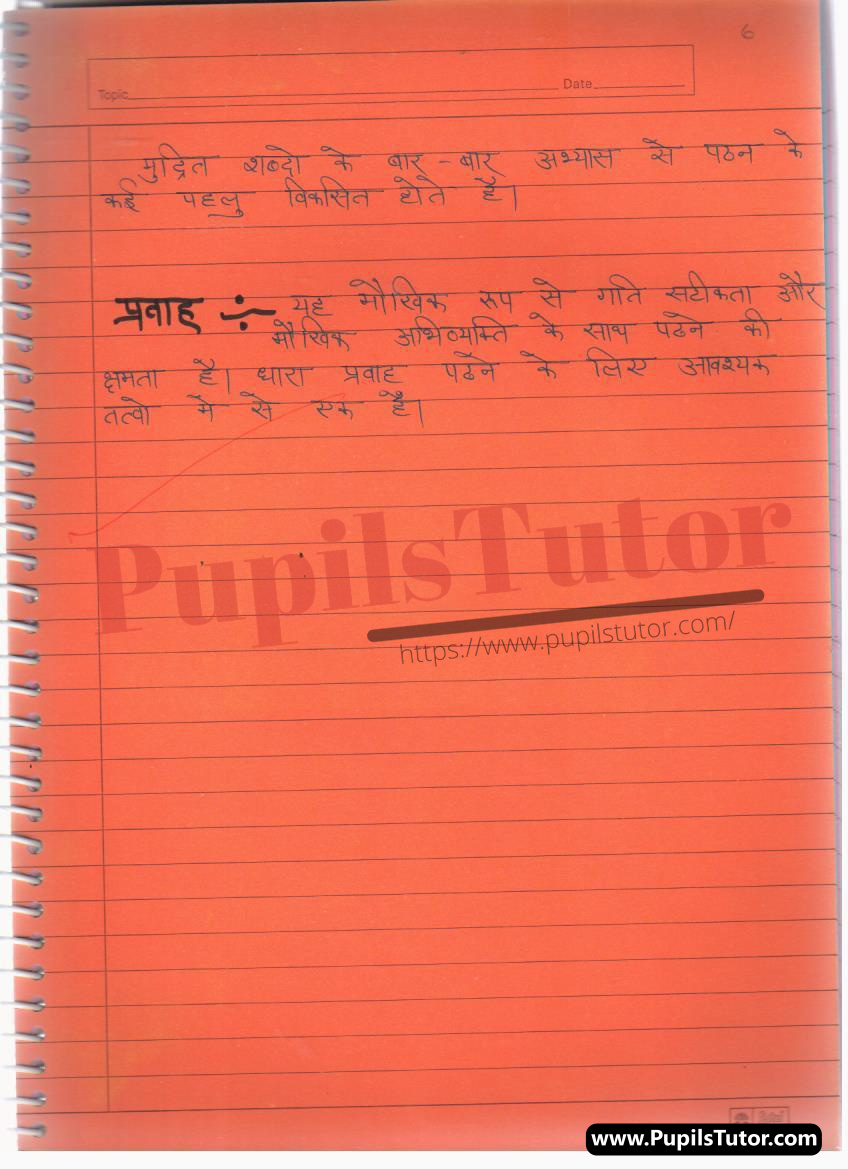 6
Topic
Date
मुद्रित शब्दो के बार-बार अभ्यास से पठन के
कई पहलु विकसित होते है।
प्रवाह ÷ यह मौखिक रूप से गति सटीकता और
मौखिक अभिव्यक्ति के साथ पढने की
क्षमता है। धारा प्रवाह पढने के लिए आवश्यक
तत्वो मे से एक है।
PupilsTutor
https://www.pupilstutor.com/
www.PupilsTutor.com